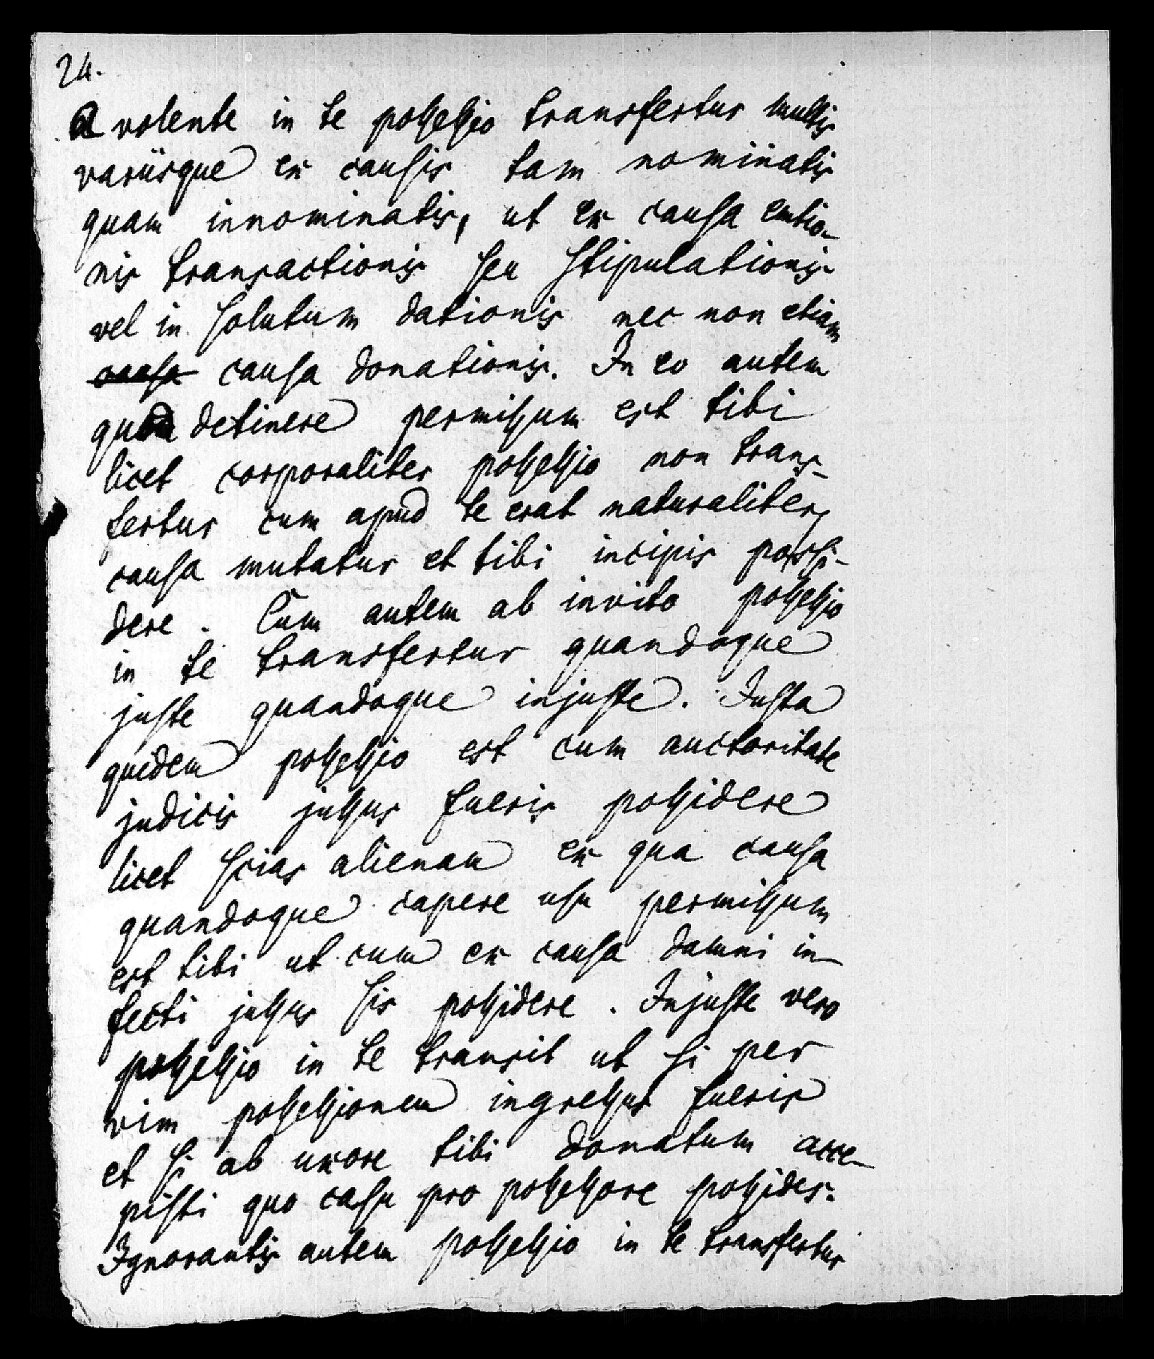 24.
A volente in te possessio transfertur multis
variisque ex causis tam nominatis
quam innominatis, ut ex causa emtio-
nis transactionis seu stipulationis
vel in solutum dationis nec non etiam
causa causa donationis. In eo autem
quod detinere permissum est tibi
licet corporaliter possessio non trans-
fertur cum apud te erat naturaliter
causa mutatur et tibi incipis possi-
dere. Cum autem ab invito possessio
in te transfertur quandoque
juste quandoque injuste. Justa
quidem possessio est cum auctoritate
judicis jussus fueris possidere
licet scias alienam ex qua causa
quandoque capere usu permissum
est tibi ut cum ex causa damni in-
fecti jussus sis possidere. Injuste vero
possessio in te transit ut si per
vim possessionem ingressus fueris
et si ab uxore tibi donatum acce-
pisti quo casu pro possessore possides.
Ignorantis autem possessio in te transfertur